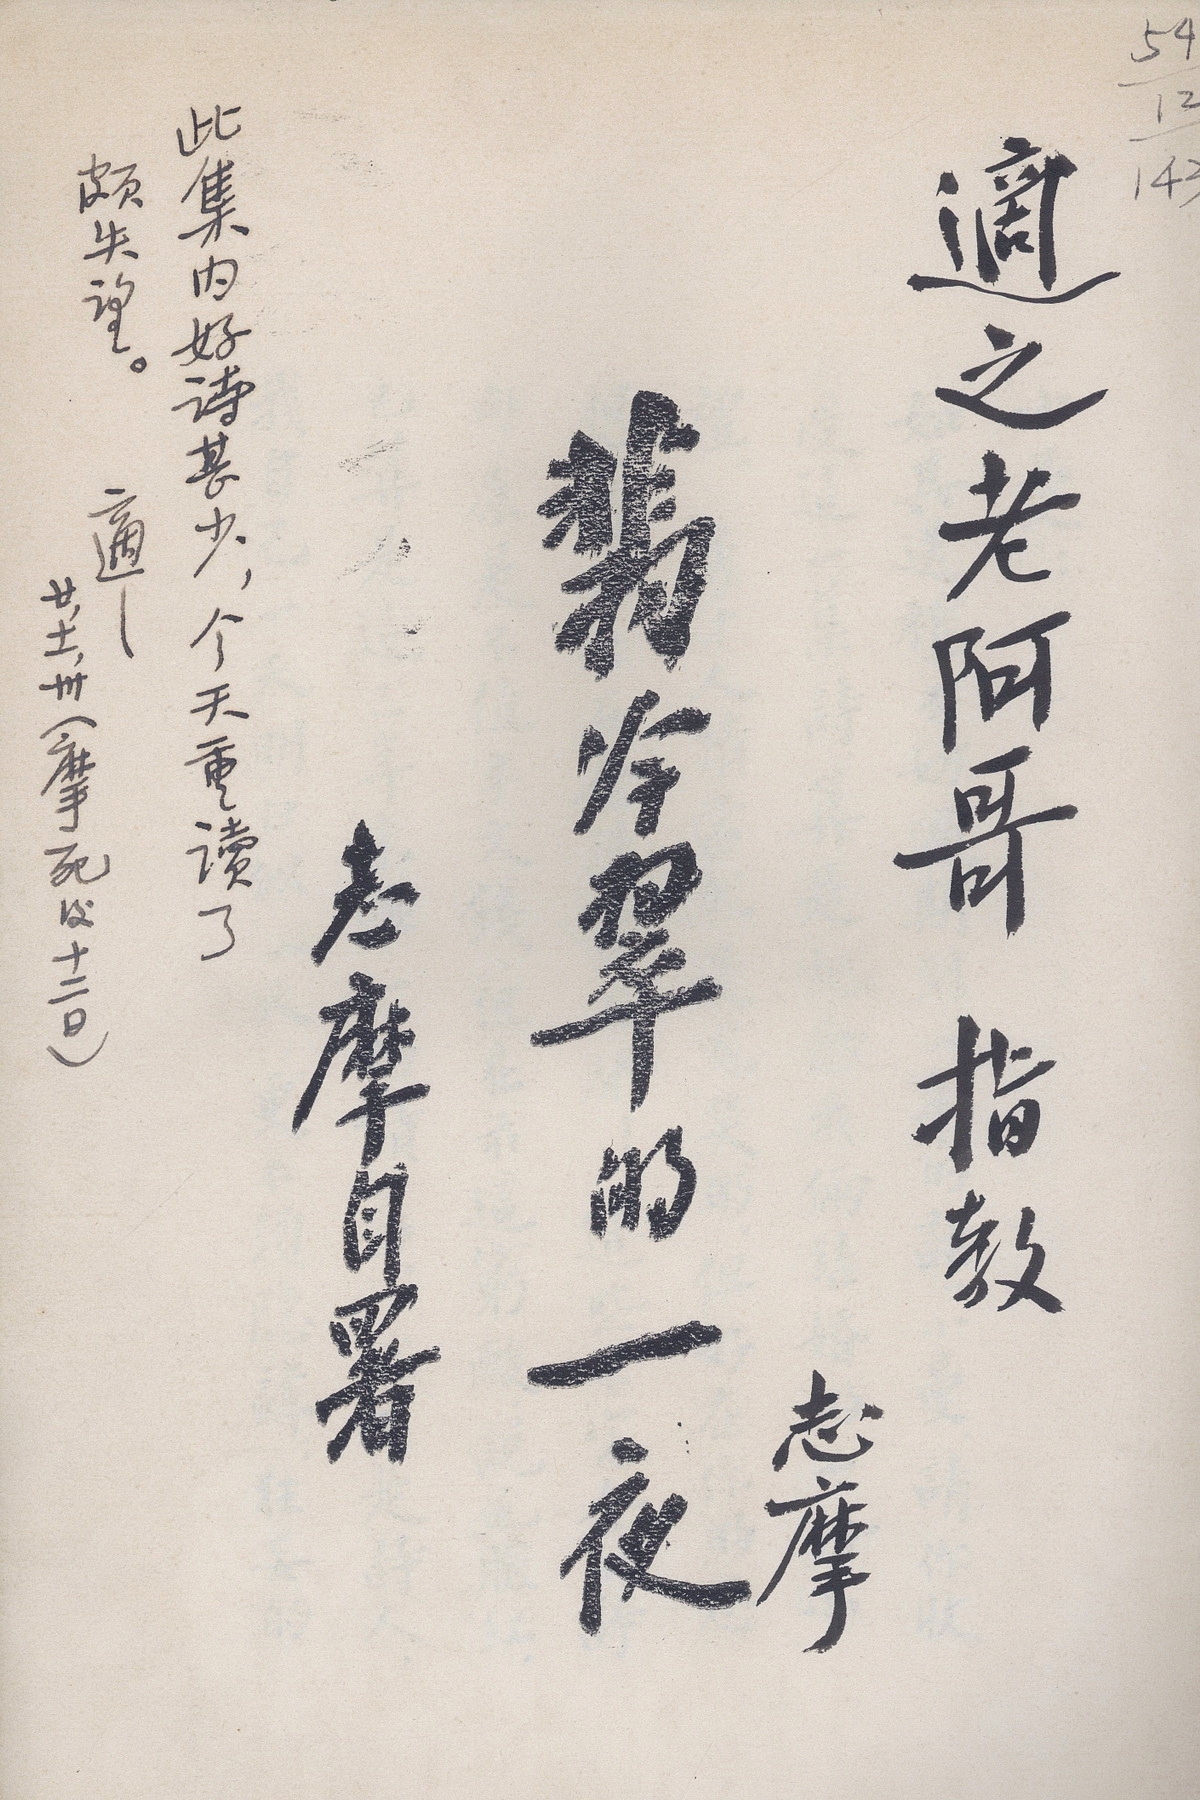 54
12
143
適之老阿哥 指教
志摩
翡冷翠的一夜
志摩自署
此集内好诗甚少，今天重读了
颇失望。
適
廿，十一，卅（摩死后十二日）